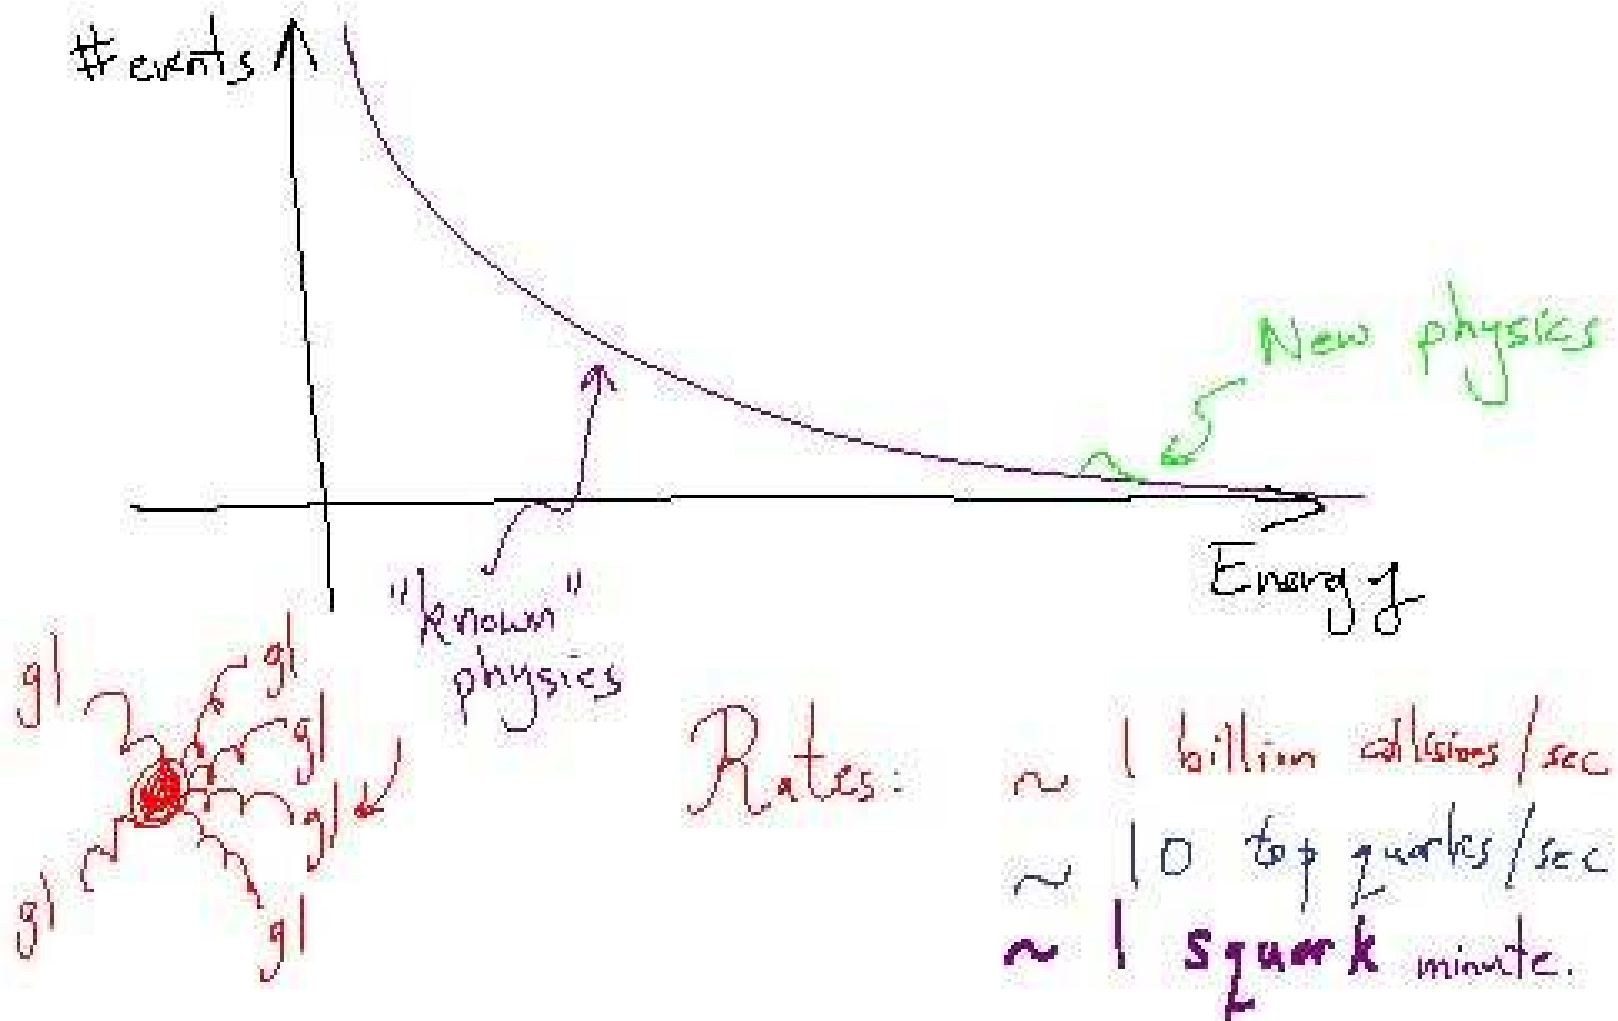 # events
New physics
Energy
"known"
physics
gl
gl
gl
gl
gl
gl
Rates: ~ 1 billion collisions/sec
~ 10 top quarks/sec
~ 1 squark minute.